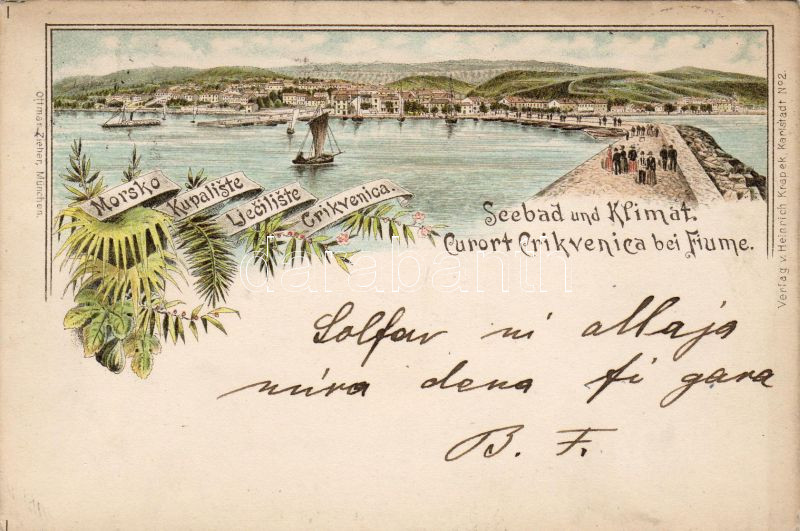 Morsko
Kupalište
Lječilište
Crikvenica.
Seebad und Klimat.
Curort Crikvenica bei Fiume.
Ottmar Zieher, München.
Verlag v. Heinrich Krapek, Karlstadt No 2.
darabanth
Solfav ni allaja
mira dena fi gara
B. F.